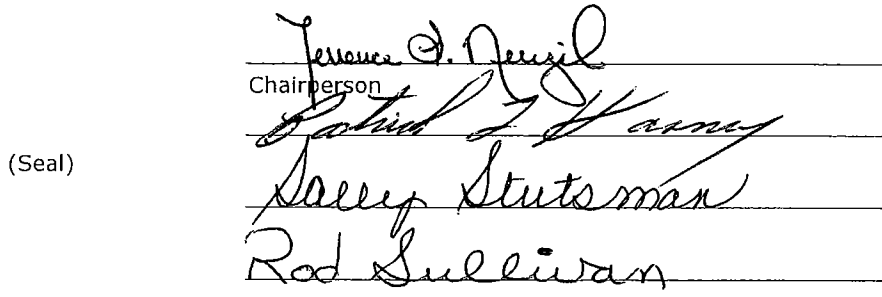 Terrence D. Neuzil
Chairperson
Patrick L Harney
(Seal)
Sally Stutsman
Rod Sullivan